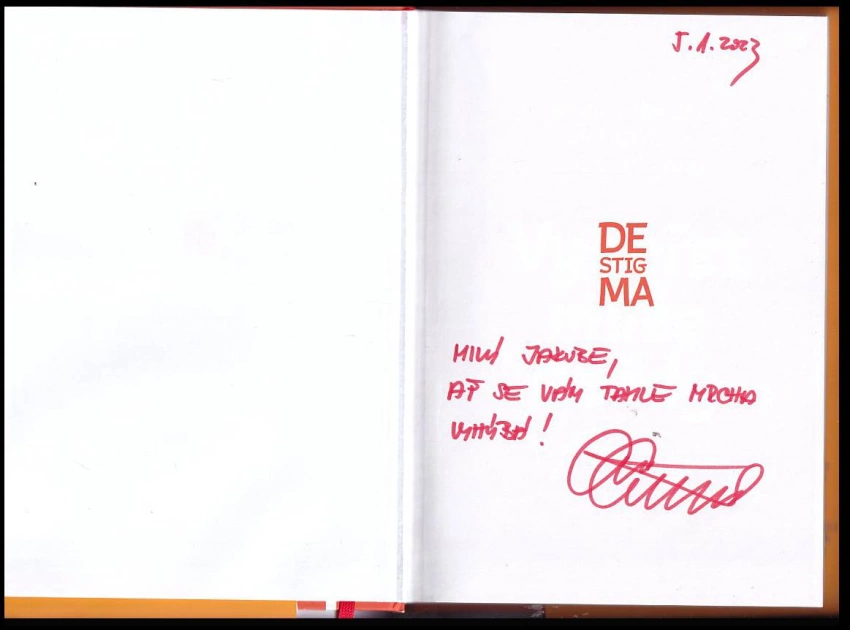 5.1.2023
DE
STIG
MA
MILÝ JAKUBE,
AŤ SE VÁM TAHLE MRCHA
VYHÝBÁ!